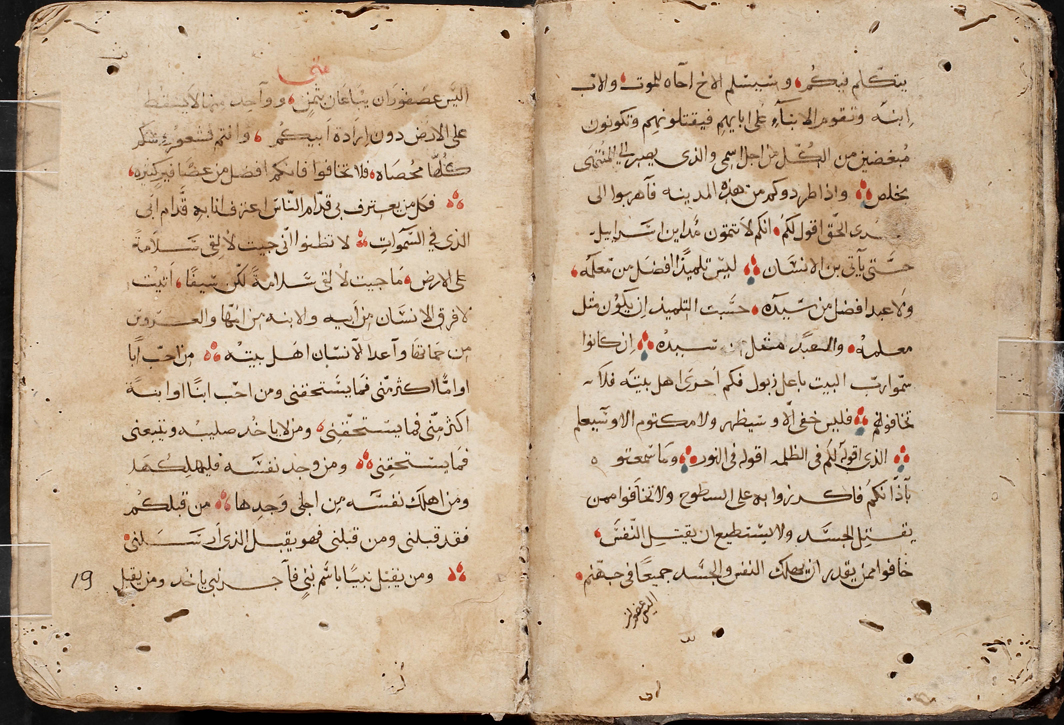 يتكلم فيكم وسيسلم الاخ اخاه للموت والاب
ابنه وتقوم الابناء على ابايهم فيقتلونهم وتكونون
مبغضين من الكل من اجل اسمي والذى يصبر الى المنتهى
يخلص واذا طردوكم من هذه المدينه فاهربوا الى
الحق اقول لكم انكم لا تتمون مداين اسرايل
حتى ياتى بن الانسان ليس تلميذا افضل من معلمه
ولا عبدا افضل من سيده حسب التلميذ ان يكون مثل
معلمه والعبد مثل سيده ان كانوا
سموا رب البيت باعل زبول فكم احرى اهل بيته فلا
تخافوهم فليس خفى الا وسيظهر ولا مكتوم الا وسيعلم
الذى اقوله لكم فى الظلمه اقوله فى النور وما سمعتوه
باذانكم فاكدرزوا به على السطوح ولا تخافوا ممن
يقتل الجسد ولا يستطيع ان يقتل النفس
خافوا ممن يقدر ان يهلك النفس والجسد جميعا فى جهنم
اليس عصفوران
متى
اليس عصفوران يباعان بثمن وواحد منها لا يسقط
على الارض دون ارادة ابيكم وانتم فشعور شعركم
كلها محصاه فلا تخافوا فانكم افضل من عصافير كثيره
فكل من يعترف بى قدام الناس اعترف انا به قدام ابى
الذى فى السموات لا تظنوا انى جيت لالقى سلامة
على الارض ما جيت لالقى سلامة لكن سيفا اتيت
لافرق الانسان من ابيه والابنه من امها والعروس
من حماتها واعدا الانسان اهل بيته من احب ابا
او اما اكثر منى فما يستحقنى ومن احب ابنا او ابنة
اكثر منى فما يستحقنى ومن لا ياخد صليبه ويتبعنى
فما يستحقنى ومن وجد نفسه فليهلكها
ومن اهلك نفسه من اجلى وجدها من قبلكم
فقد قبلنى ومن قبلنى فهو يقبل الذى ارسلنى
ومن يقبل نبيا باسم نبى فاجر نبى ياخد ومن يقبل
19